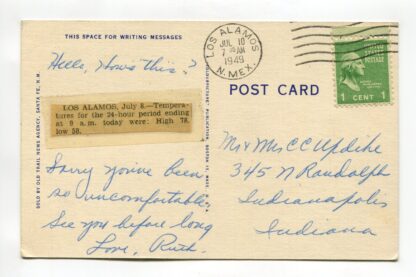 THIS SPACE FOR WRITING MESSAGES
Hello, How's this?
LOS ALAMOS, July 8.—Tempera-
tures for the 24-hour period ending
at 9 a.m. today were: High 78,
low 50.
Sorry you've been
so uncomfortable.
See you before long
Love, Ruth.
SOLD BY OLD TRAIL NEWS AGENCY, SANTA FE, N.M.
PUBLICATION, BOSTON 15, MASS.
LOS ALAMOS
JUL 10
7 AM
1949
N. MEX.
UNITED STATES
POSTAGE
1 CENT 1
POST CARD
Mr & Mrs C C Updike
345 N Randolph
Indianapolis
Indiana